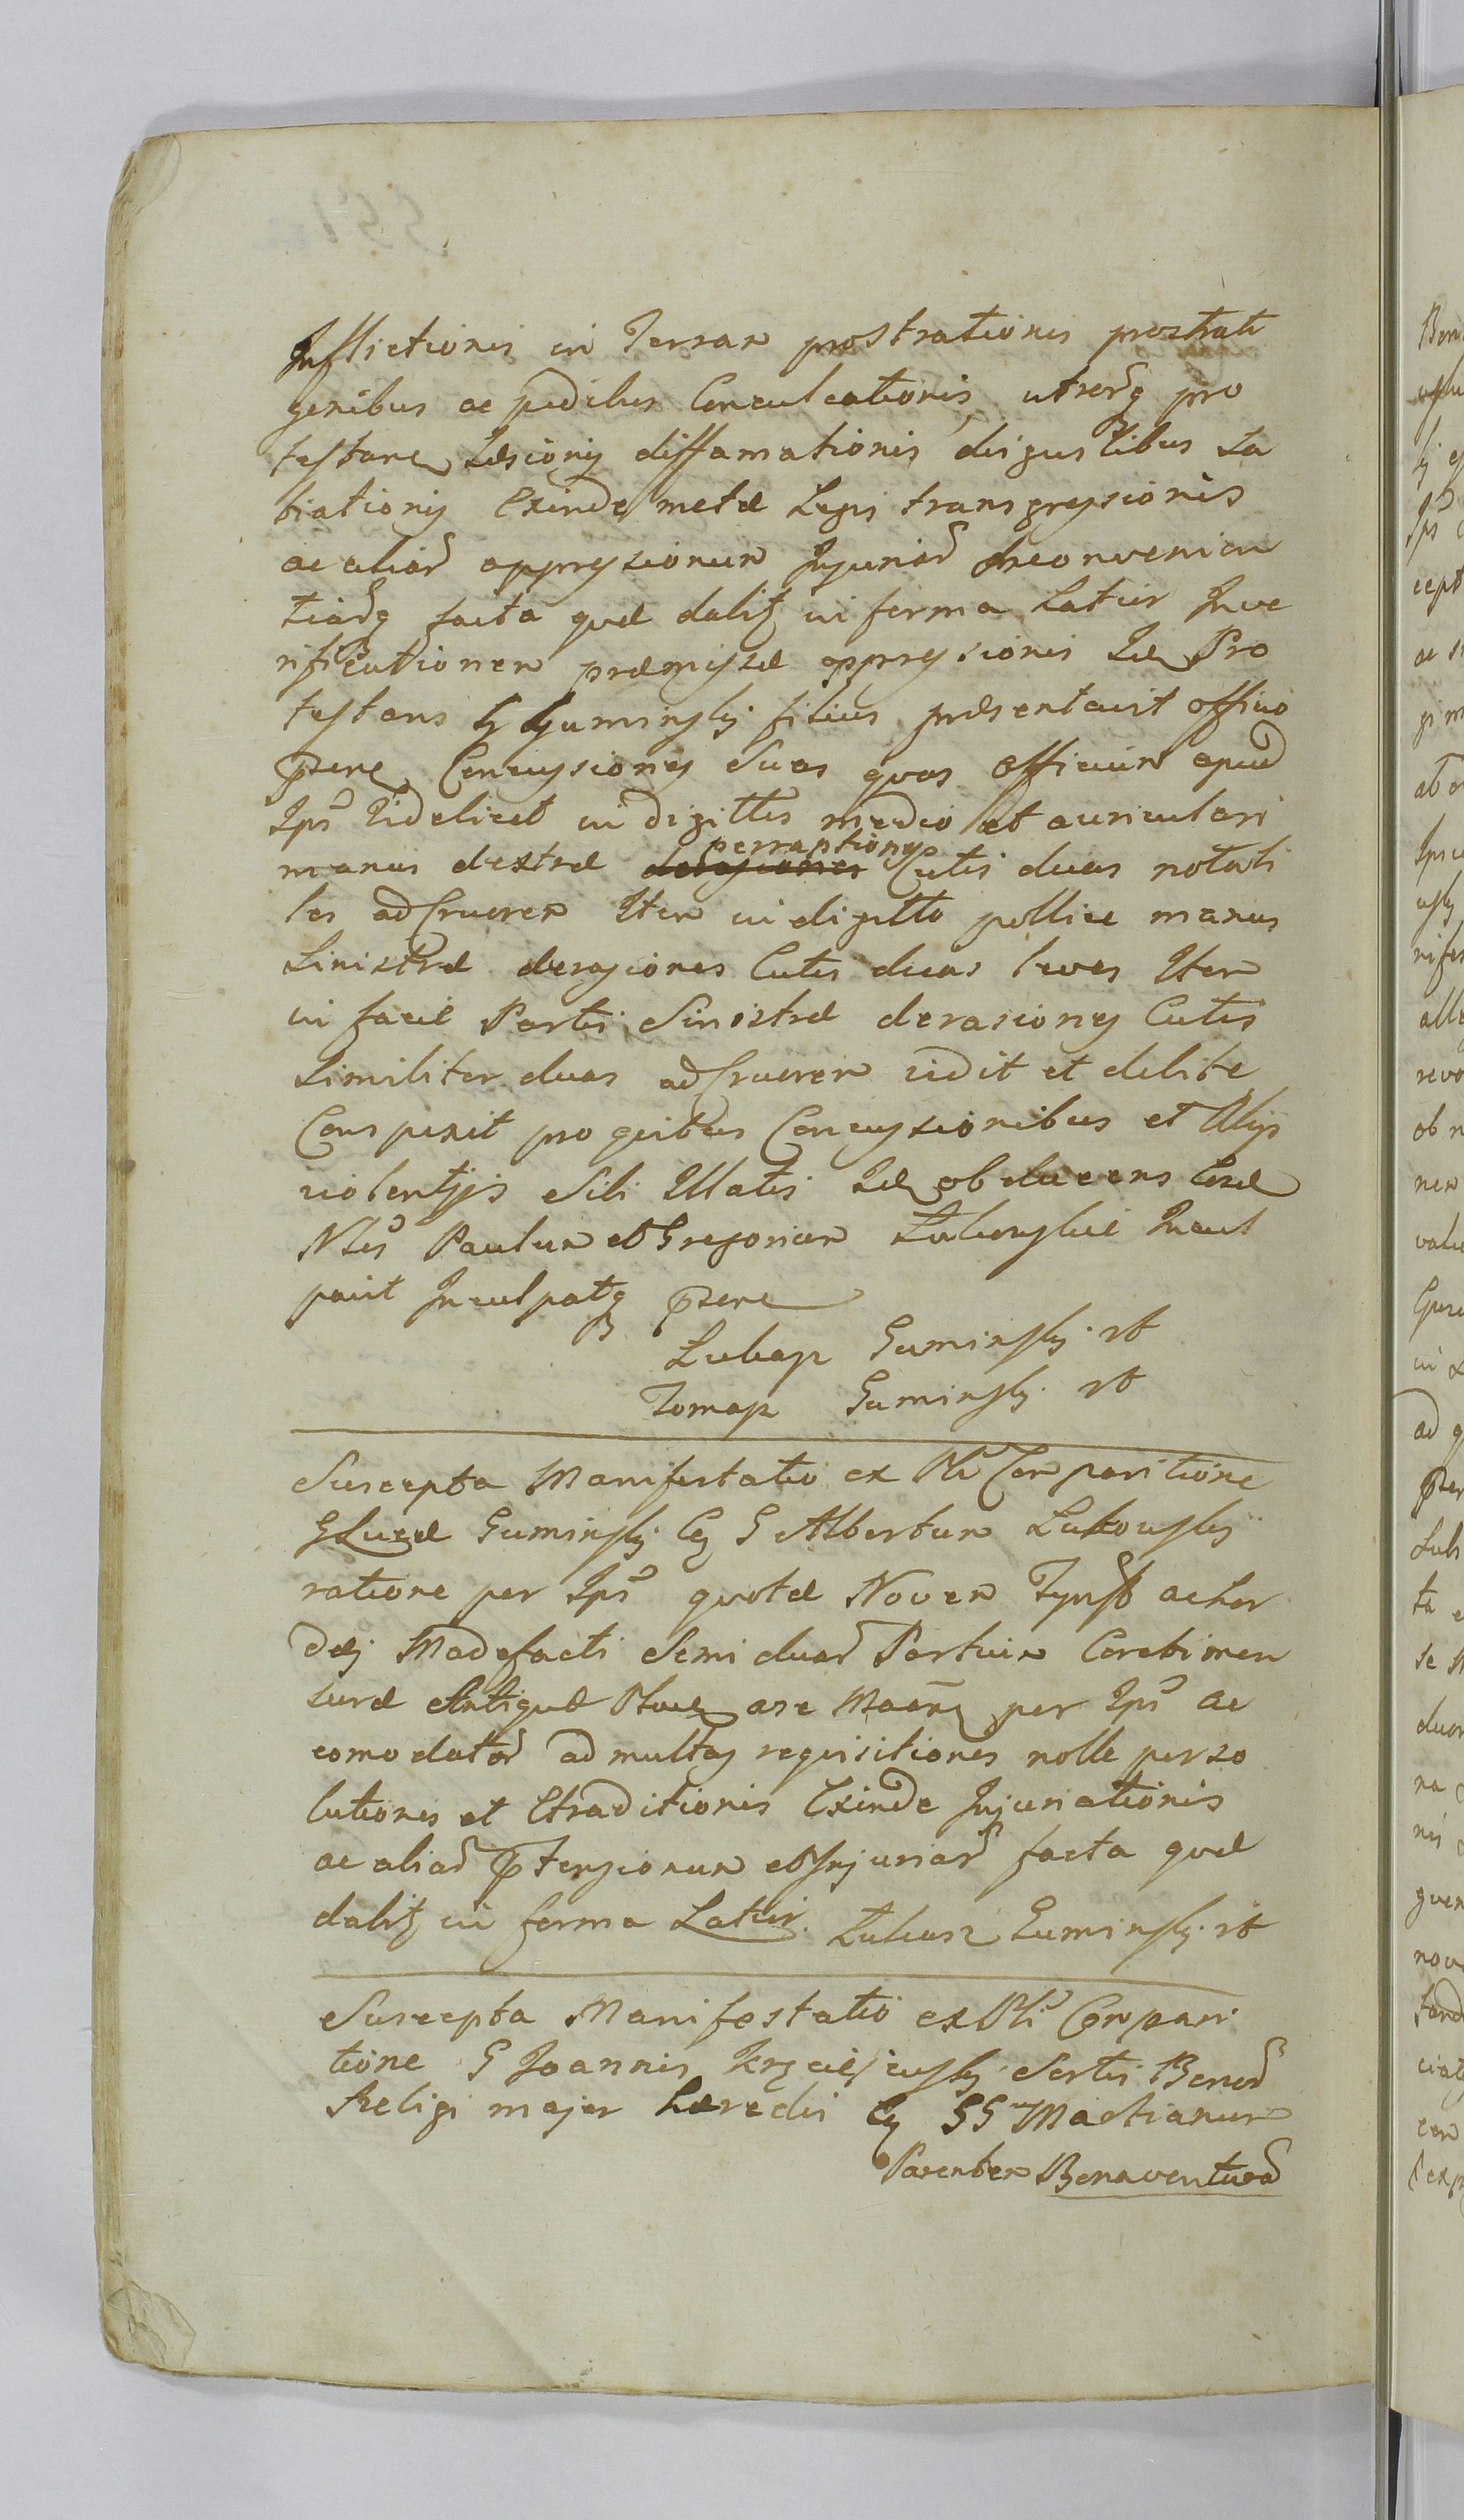 Inflictionis in Terram prostrationis prostrati
genibus ac pedibus Conculcationis, utrorq pro
testane Læsionis diffamationis disgustibus Sa
tiationis Exinde metæ Legis transgressionis
ac aliar oppressionum Injuriar Inconvenien
tiarq facta quæ dalis in forma Latius Inve
rificationem præmissæ oppressionis Idem Pro
testans G Guminsky filius præsentavit officio
pnti Concussiones Suas quas Officium apud
Ips Videlicet in digittis medio et auriculari
manus dextræ perraptiones Cutis duas notabi
les ad Cruorem Item in digitto pollice manus
Sinistræ derasiones Cutis duas leves Item
in facie Partis Sinistræ derasiones Cutis
Similiter duas ad Cruorem vidit et debite
Conspexit pro quibus Concussionibus et Alys
violentijs Sibi Illatis Idem obducens
Nles Paulum et Gregorium Incul
pavit Inculpatq
Guminsky
Tomasz Guminsky
Suscepta Manifestatio ex Oli Comparitione
G Lucæ Guminsky G Albertum Lukowsky
ratione per Ips quotæ Novem Tynff ac hor
dei Madefacti Semi duar Partium Coreti men
suræ Antiquæ per Ips ac
comodator ad multas requisitiones nolle perso
lutionis et Extraditionis Exinde Injuriationis
ac aliar ptensionum et Injuriar facta quæ
dalis in forma Latius. Lukasz Guminsky
Suscepta Manifestatio ex Oli Compari
tione G Joannis Sortis Bonor
Religi major hæredis GG Martianum
Parentem Bonaventuræ